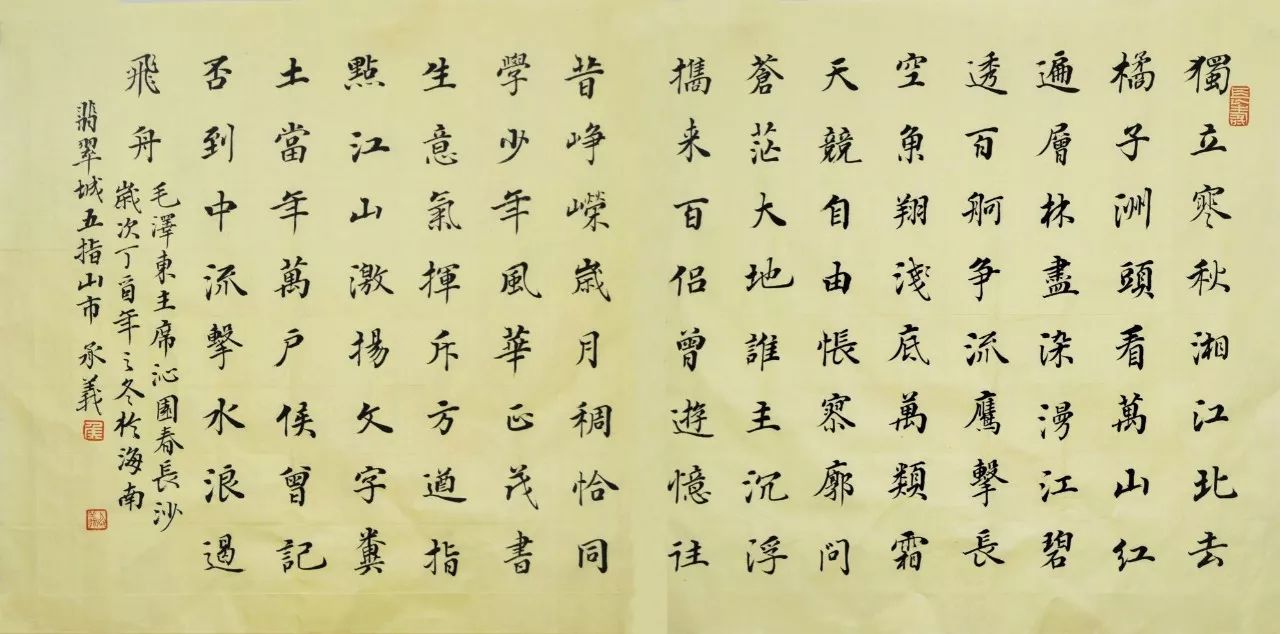 獨立寒秋湘江北去
橘子洲頭看萬山红
遍層林盡染漫江碧
透百舸争流鷹擊長
空魚翔淺底萬類霜
天競自由悵寥廓问
蒼茫大地誰主沉浮
攜来百侣曾遊憶往
昔峥嶸歲月稠恰同
學少年風華正茂書
生意氣揮斥方遒指
點江山激揚文字糞
土當年萬户侯曾記
否到中流擊水浪遏
飛舟
毛澤東主席沁園春長沙
歲次丁酉年之冬於海南
翡翠城五指山市承義